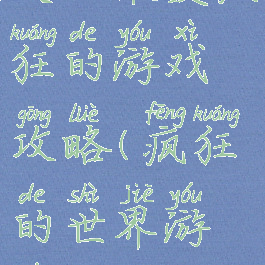 kuáng de yóu xì
狂的游戏
gōng lüè fēng kuáng
攻略(疯狂
de shì jiè yóu
的世界游